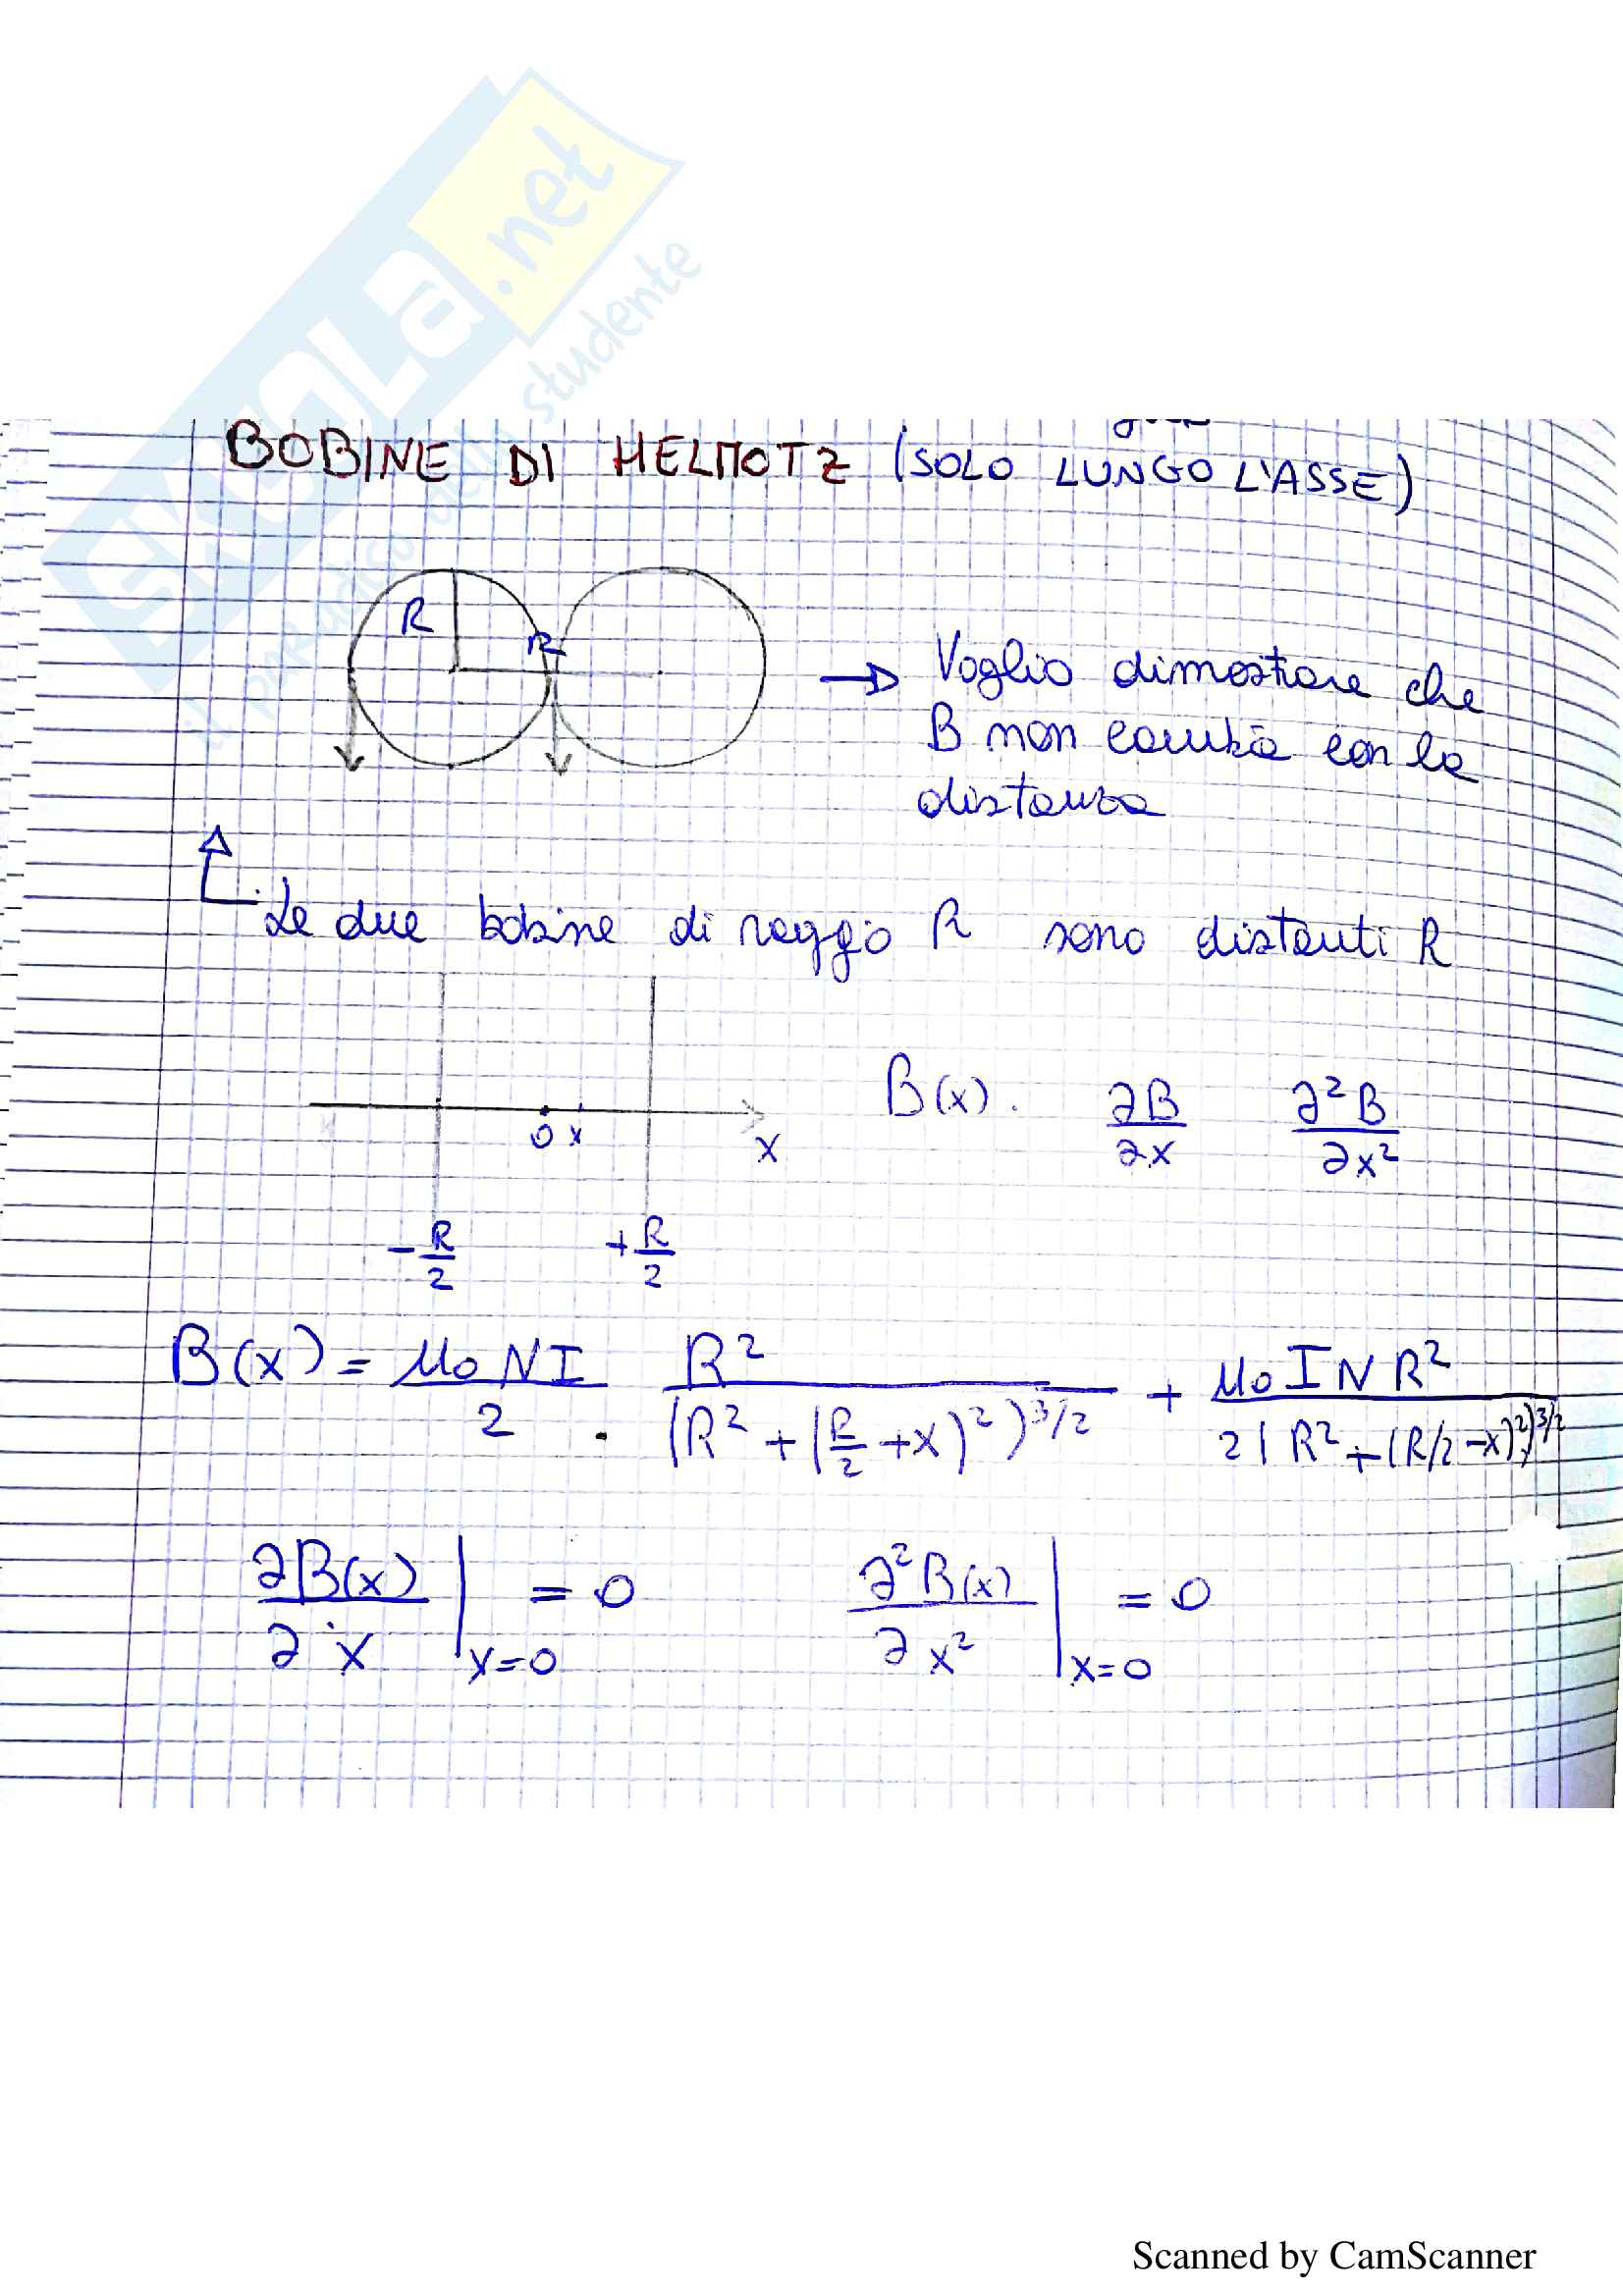 SKUOLA.net
il paradiso dello studente
BOBINE DI HELMOTZ (SOLO LUNGO L'ASSE)
R
R
→ Voglio dimostrare che
B non cambia con la
distanza
Le due bobine di raggio R sono distanti R
B(x). ∂B/∂x ∂²B/∂x²
0 x
x
-R/2 +R/2
B(x) = μ0NI/2 · R²/(R²+(R/2+x)²)^3/2 + μ0INR²/2(R²+(R/2-x)²)^3/2
∂B(x)/∂x |x=0 = 0 ∂²B(x)/∂x² |x=0 = 0
Scanned by CamScanner